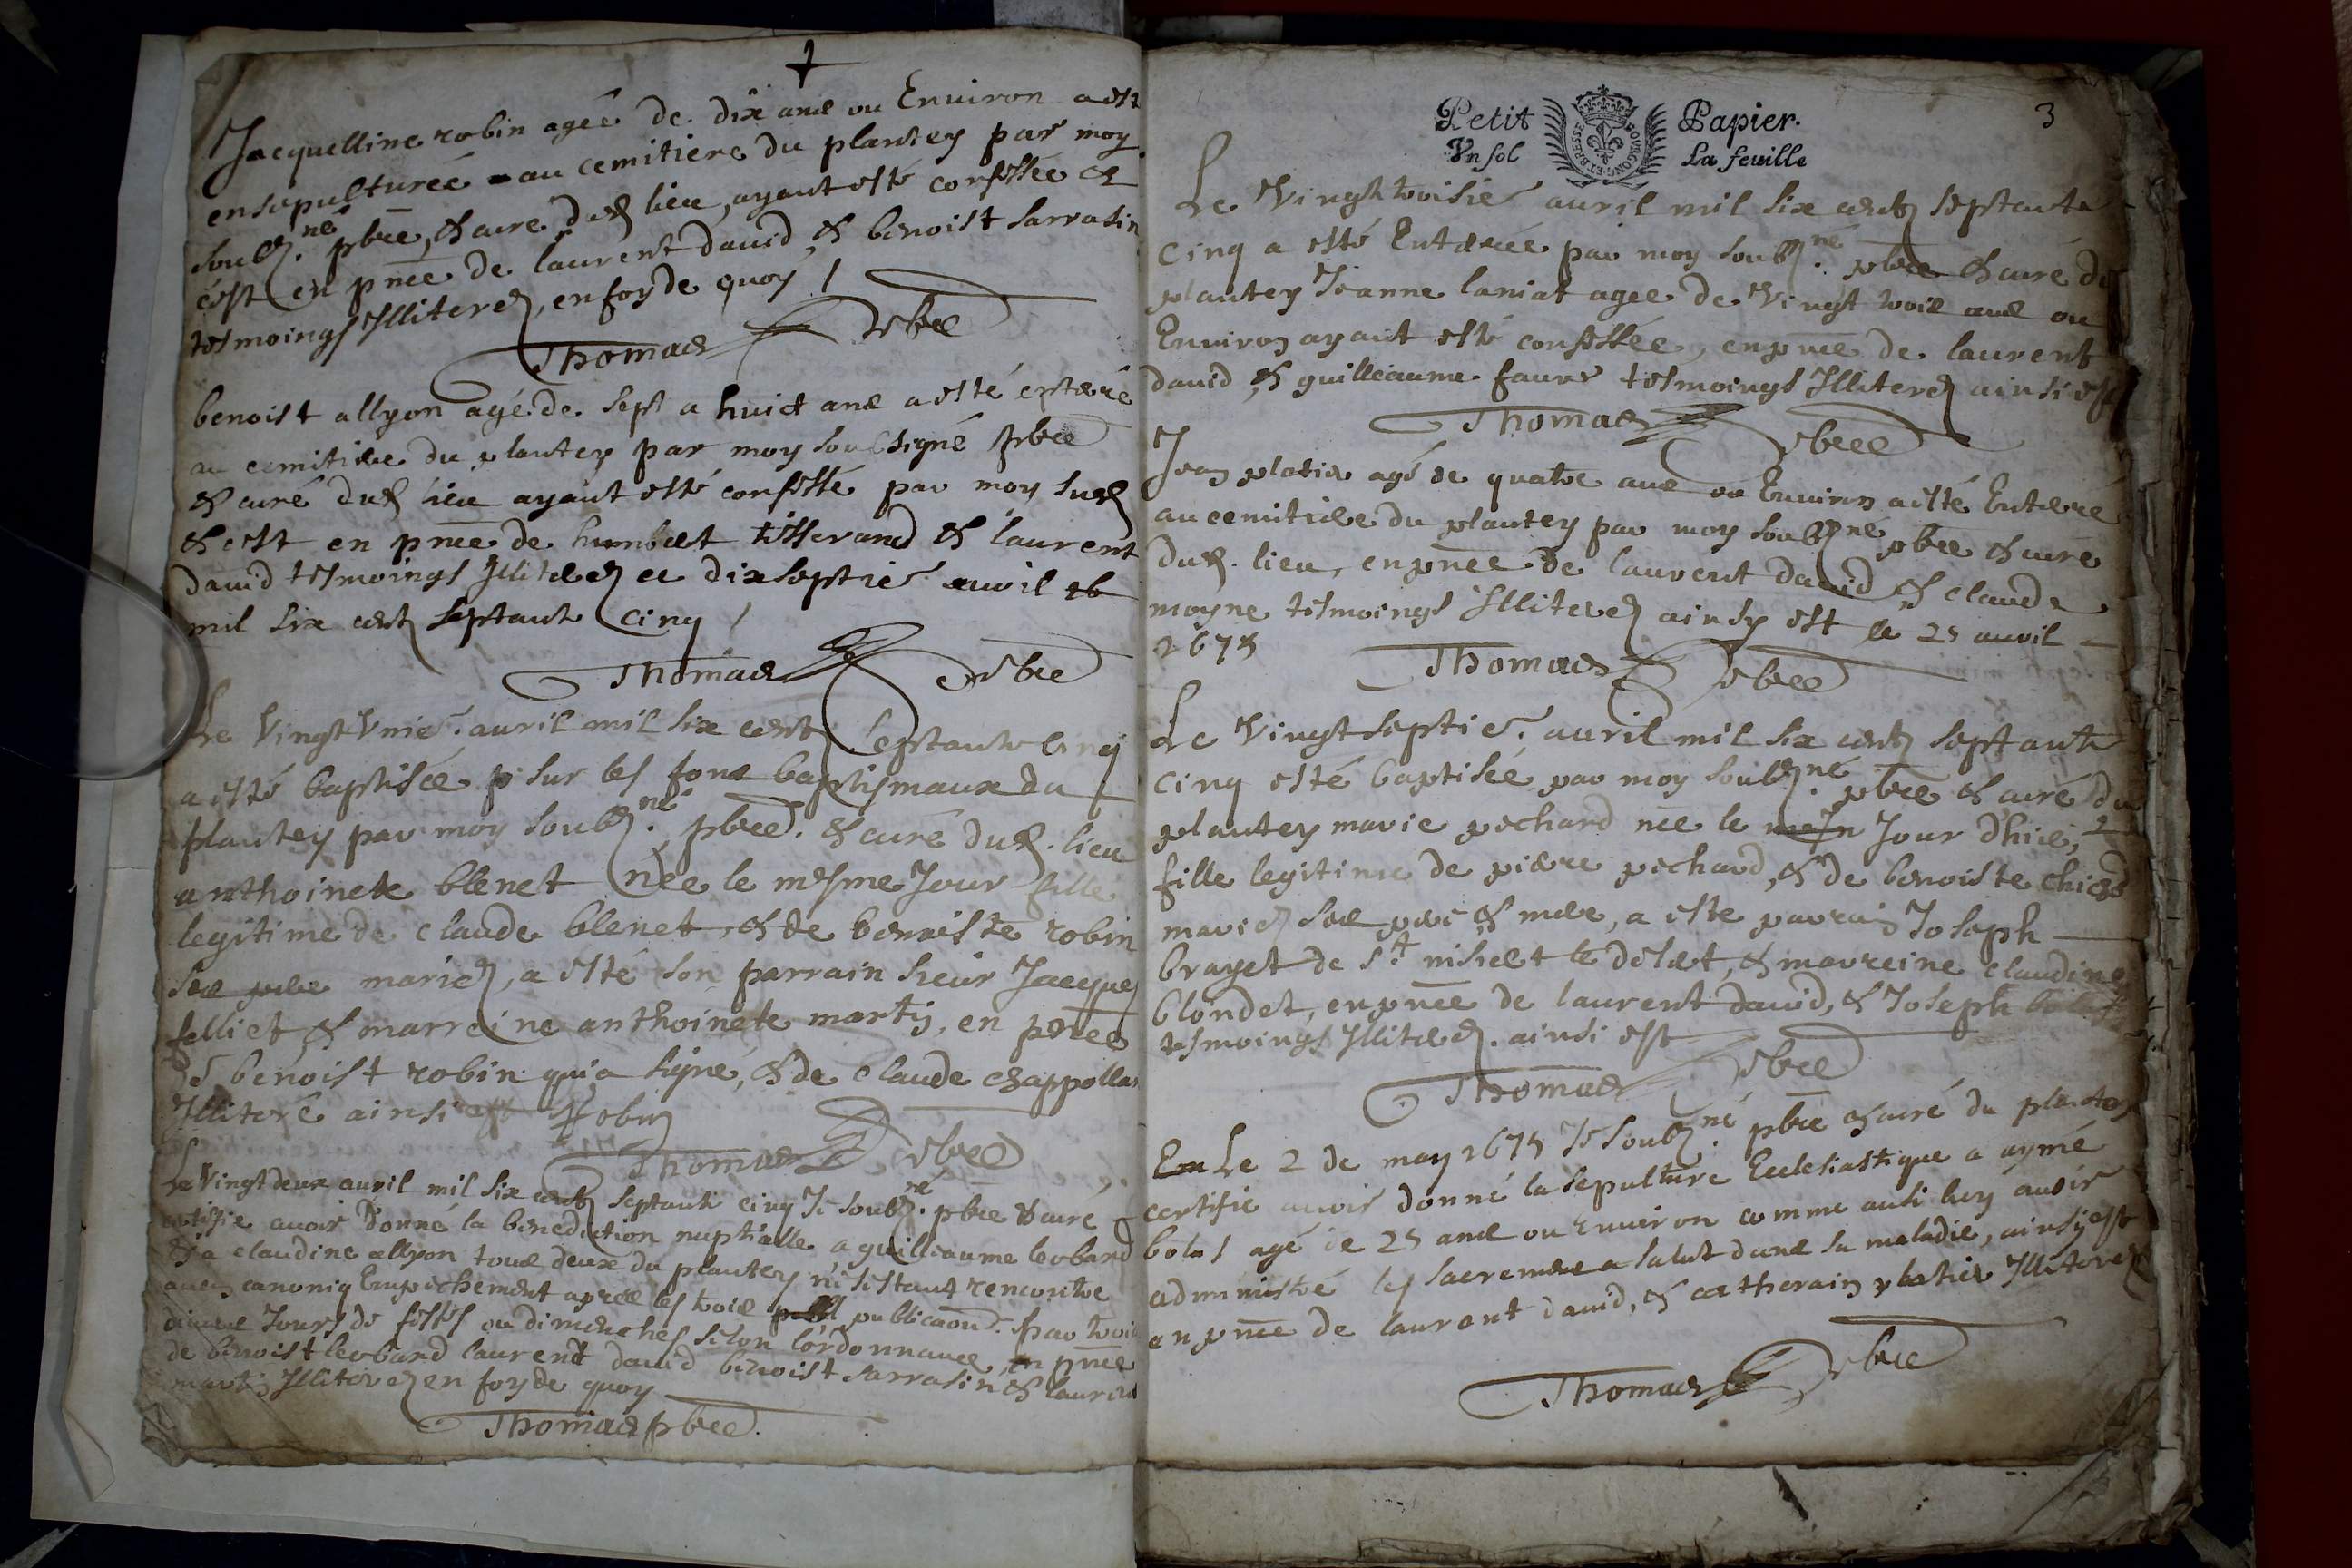 Jacquelline robin agée de dix ans ou Environ a esté
ensepulturée au cemitiere du plantey par moy
soubz.né pbre, & cure dud lieu, ayant esté confessée et
cest en pnce de laurent david & benoist sarrasin
tesmoings Illiterez, en foy de quoy /
Thomas pbre
benoist allyon agé de sept a huict ans a esté enterré
au cemitiere du plantey par moy soubsigné pbre
& curé dud lieu ayant esté confessé par moy sud
& cest en pnce de humbert tisserand & laurent
david tesmoings Illiterez ce dixseptie avril
mil six centz septante cinq /
Thomas pbre
Le Vingt Vnie. avril mil six centz septante cinq
a esté baptisée sur les fons baptismaux du
plantey par moy soubz.né pbre. & curé dud. lieu
anthoinete blenet née le mesme Jour fille
legitime de claude blenet & de benoiste robin
mariez, a esté son parrain sieur Jacques
felliet, & marreine anthoinete martin, en pnce
de benoist robin qui a signé, & de claude chappolla
Illiteré ainsi est Robin
Thomas pbre
Le Vingt deux avril mil six centz septante cinq Je soubz.né pbre & curé
certifie avoir donné la benediction nuptialle a guilleaume leobard
& a claudine allyon tous deux du plantey n'i s'estant rencontre
aucun canoniq Empechement apres les trois publicaons. par trois
divers Jours de festes ou dimenches selon l'ordonnance, en pnce
de benoist leobard laurent david benoist sarrasin & laurent
martin Illiterez en foy de quoy
Thomas pbre.
3
Petit Papier.
Vn sol La feuille
BOURGONG.ET.BRESSE
Le Vingt troisie avril mil six centz septante
cinq a esté Enterrée par moy soubz.né pbre & curé du
plantey Jeanne laniat agee de Vingt trois ans ou
Environ ayant esté confessée, en pnce de laurent
david & guilleaume favre tesmoings Illiterez ainsi est
Thomas pbre
Jean platier agé de quatre ans ou Environ a esté Enterré
au cemitiere du plantey par moy soubz.né pbre & curé
dud. lieu, en pnce de laurent david & claude
moyne tesmoings Illiterez ainsy est le 25 avril
1675
Thomas pbre
Le Vingt septie. avril mil six centz septante
cinq esté baptisée par moy soubz.né pbre & curé du
plantey marie pechard née le Jour d'hier,
fille legitime de pierre pechard, & de benoiste
mariez ses pere & mere, a este parrain Joseph
brayet de st nisiet le desert, & marreine claudine
blondet, en pnce de laurent david, & Joseph
tesmoings Illiterez. ainsi est
Thomas pbre
Le 2 de may 1675 Je soubz.né pbre & curé du plantey
certifie avoir donné la sepulture Ecclesiastique a aymé
bolas agé de 25 ans ou Environ comme aussi luy avoir
administré les sacremens a salut dans sa maladie, ainsy est
en pnce de laurent david, & catherain platier Illiterez
Thomas pbre